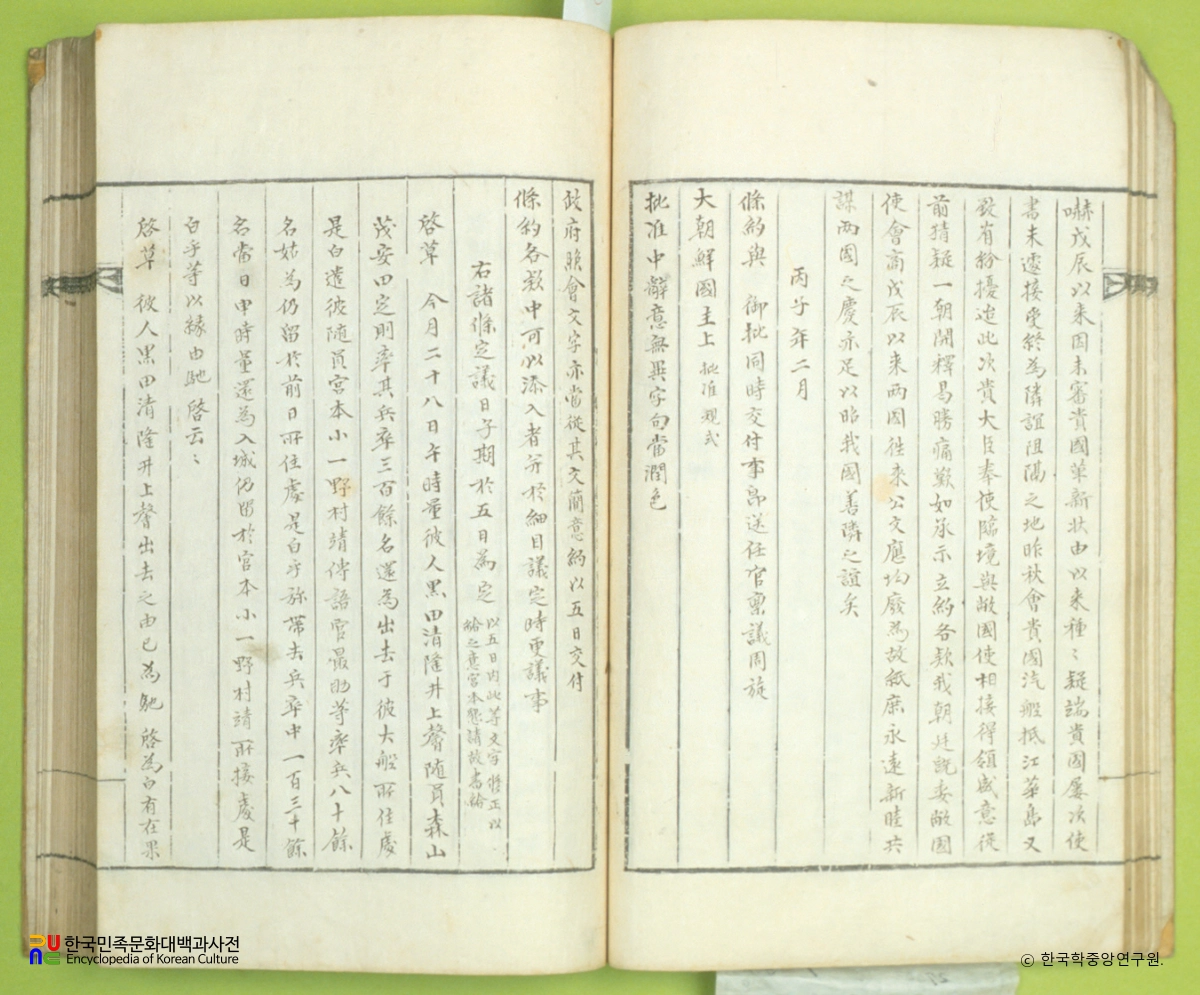 嚇戊辰以來因未審貴國革新狀由以來種〻疑端貴國屢次使
書未遽接受終爲隣誼阻隔之地昨秋會貴國汽船抵江華島又
致有紛擾迨此次貴大臣奉使臨境與敝國使相接得領盛意從
前猜疑一朝開釋曷勝痛歎如承示立約各款我朝廷旣委敝國
使會商戊辰以來兩國徃來公文應均廢爲故紙庶永遠新睦共
謀兩國之慶亦足以昭我國善隣之誼矣
丙子年二月
條約與 御批同時交付事郞送任官稟議周旋
大朝鮮國主上 批准規式
批准中辭意無異字句當潤色
政府照會文字亦當從其文簡意約以五日交付
條約各款中可以添入者弁於細目議定時更議事
右諸條定議日子期於五日爲定 以五日內此等文字修正以
給之意宮本懇請故書給
啓草 今月二十八日午時量彼人黑田淸隆井上馨隨員森山
茂安田定則率其兵卒三百餘名還爲出去于彼大船所住處
是白遣彼隨員宮本小一野村靖傳語官最助等率兵八十餘
名姑爲仍留於前日所住處是白乎旀帶去兵卒中一百三十餘
名當日申時量還爲入城仍留於宮本小一野村靖所接處是
白乎等以緣由馳 啓云〻
啓草 彼人黑田淸隆井上馨出去之由已爲馳 啓爲白有在果
한국민족문화대백과사전
Encyclopedia of Korean Culture
© 한국학중앙연구원.